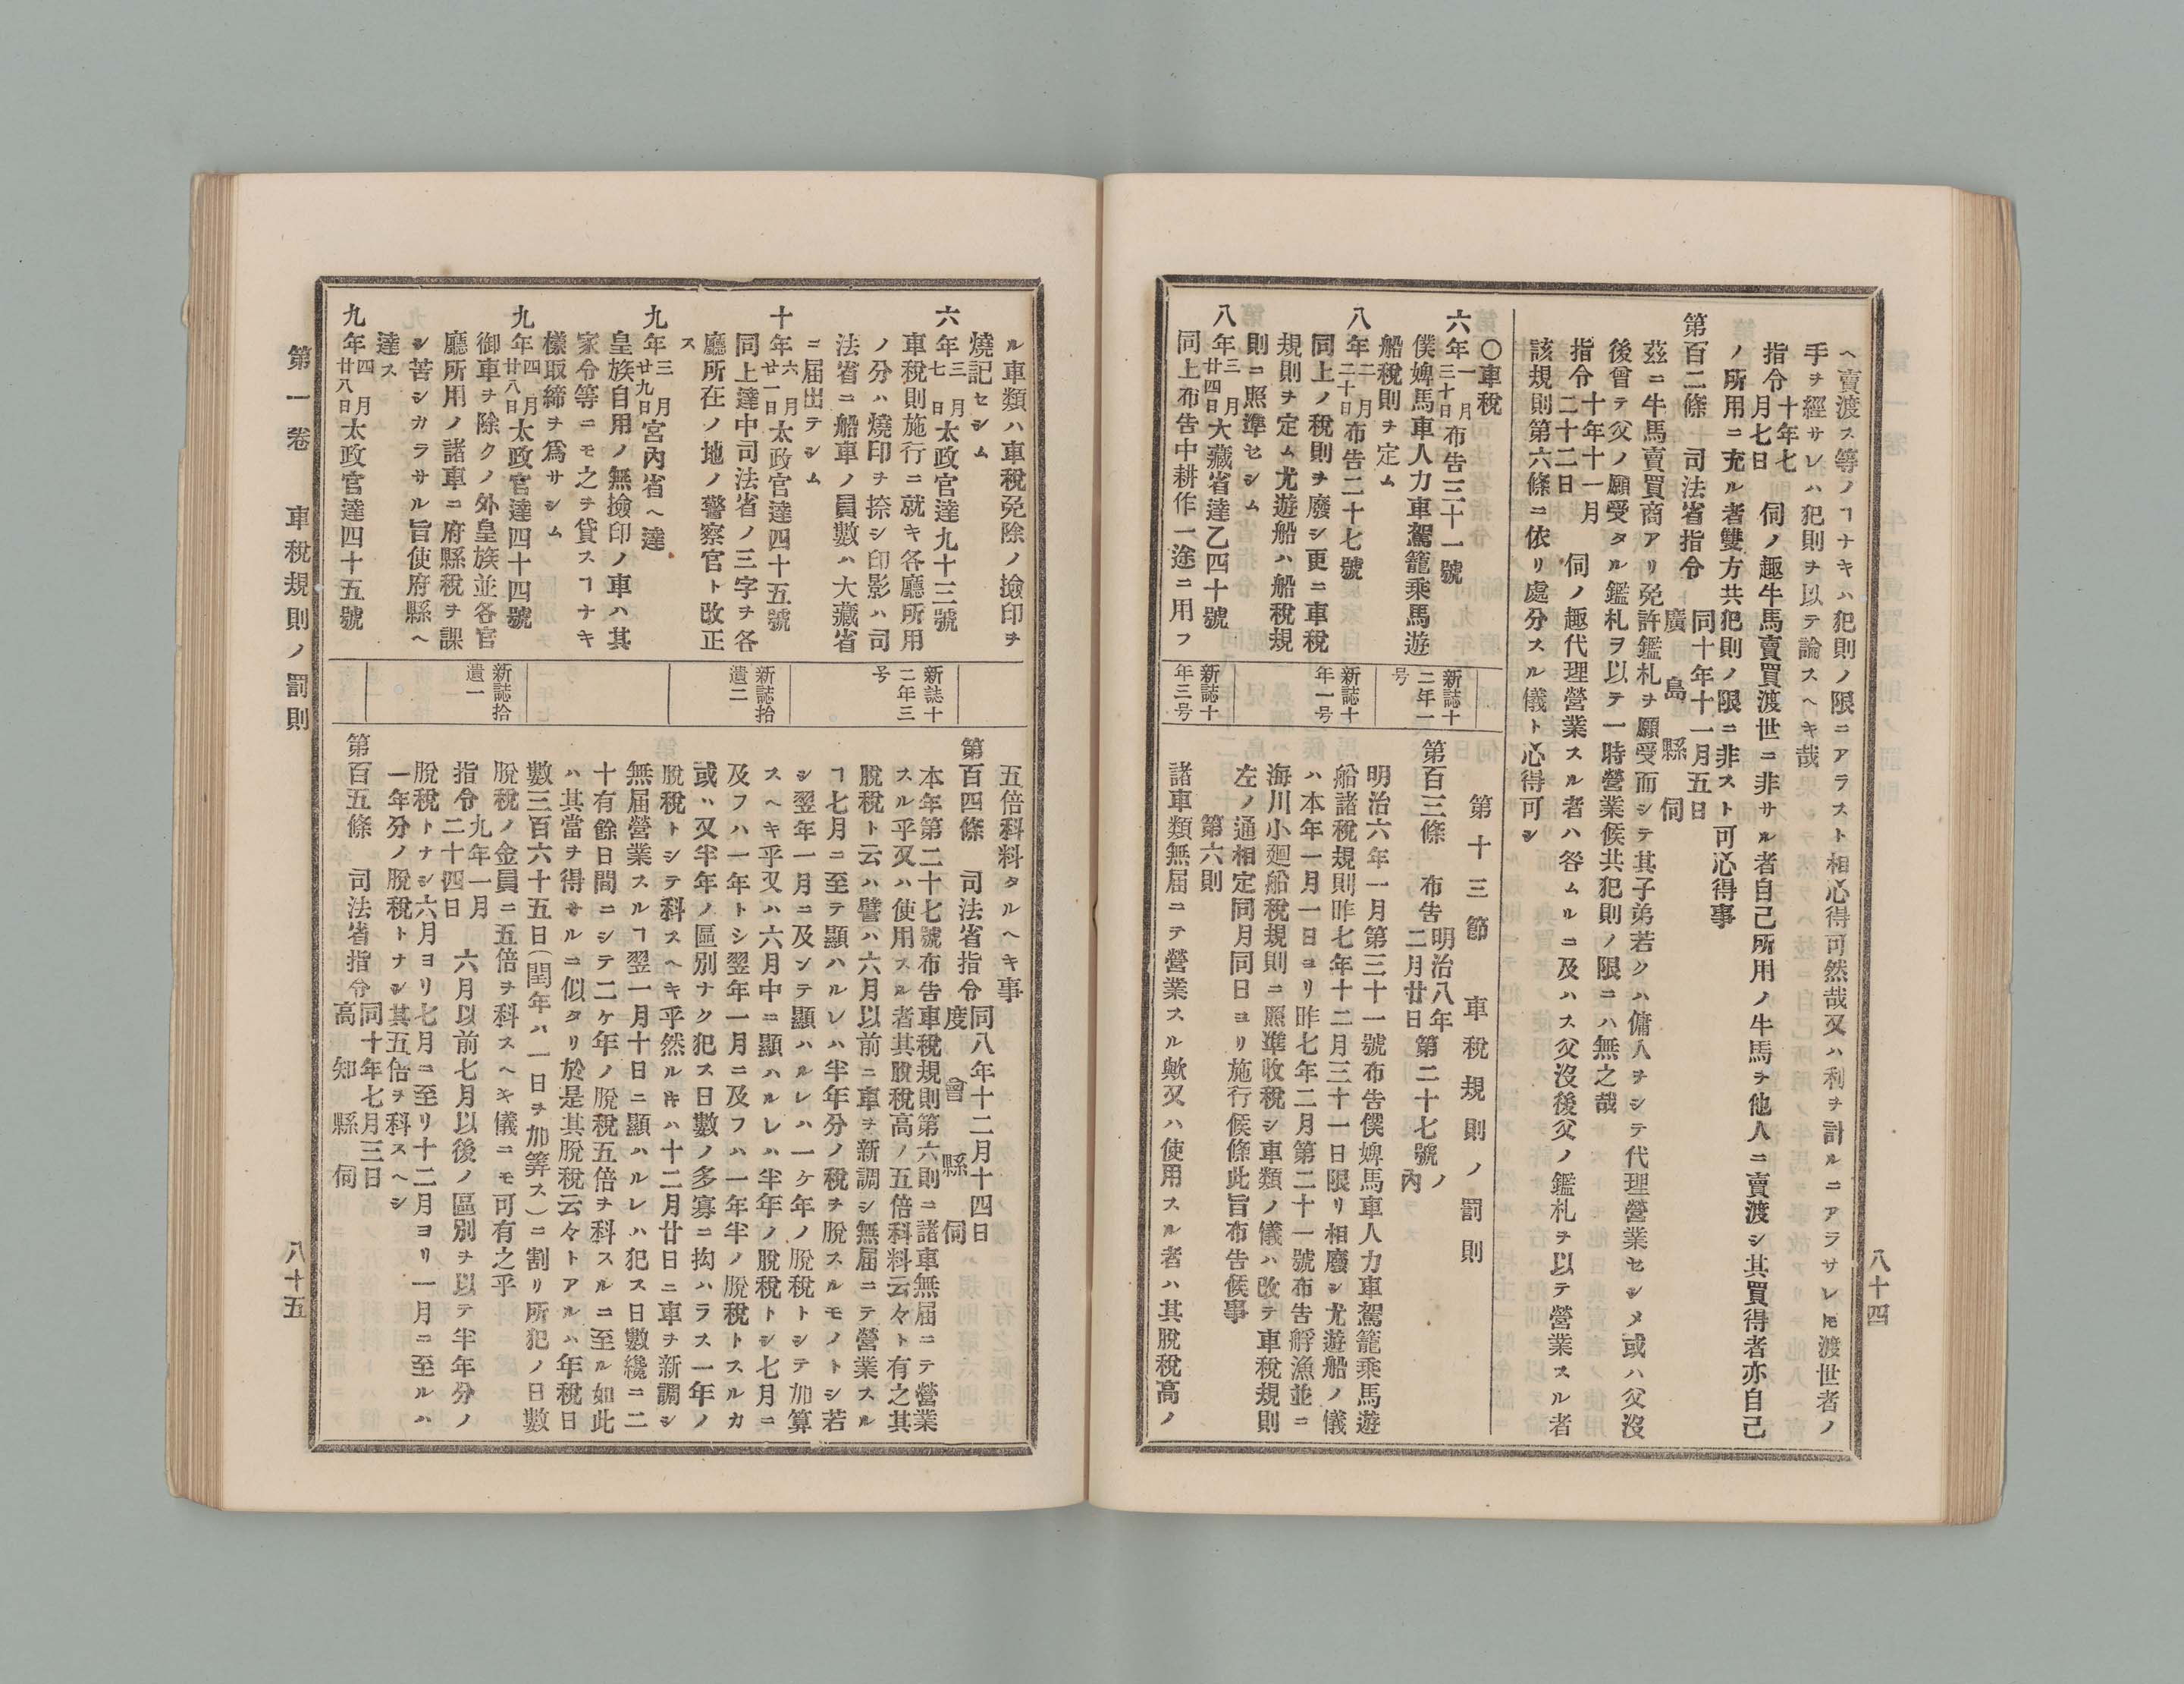 ヘ賣渡ス等ノヿナキハ犯則ノ限ニアラスト相心得可然哉又ハ利ヲ計ルニアラサレ𪜈渡世者ノ
手ヲ經サレハ犯則ヲ以テ論スヘキ哉
指令十年七月七日 伺ノ趣牛馬賣買渡世ニ非サル者自己所用ノ牛馬ヲ他人ニ賣渡シ其買得者亦自己
ノ所用ニ充ル者雙方共犯則ノ限ニ非スト可心得事
第百二條 司法省指令 同十年十一月五日 廣島縣伺
茲ニ牛馬賣買商アリ免許鑑札ヲ願受而シテ其子弟若クハ傭人ヲシテ代理營業セシメ或ハ父沒
後曾テ父ノ願受タル鑑札ヲ以テ一時營業候共犯則ノ限ニハ無之哉
指令十年十一月二十二日 伺ノ趣代理營業スル者ハ咎ムルニ及ハス父沒後父ノ鑑札ヲ以テ營業スル者
該規則第六條ニ依リ處分スル儀ト心得可シ
〇車稅
六年一月三十日布告三十一號
僕婢馬車人力車駕籠乘馬遊
船稅則ヲ定ム
八年二月二十日布告二十七號
同上ノ稅則ヲ廢シ更ニ車稅
規則ヲ定ム尤遊船ハ船稅規
則ニ照準セシム
八年三月廿四日大藏省達乙四十號
同上布告中耕作一途ニ用フ
新誌十二年一号
新誌十年一号
新誌十年三号
第十三節 車稅規則ノ罰則
第百三條 布告 明治八年二月廿日 第二十七號ノ內
明治六年一月第三十一號布告僕婢馬車人力車駕籠乘馬遊
船諸稅規則昨七年十二月三十一日限リ相廢シ尤遊船ノ儀
ハ本年一月一日ヨリ昨七年二月第二十一號布告艀漁並ニ
海川小廻船稅規則ニ照準收稅シ車類ノ儀ハ改テ車稅規則
左ノ通相定同月同日ヨリ施行候條此旨布告候事
第六則
諸車類無屆ニテ營業スル歟又ハ使用スル者ハ其脫稅高ノ
八十四
ル車類ハ車稅免除ノ撿印ヲ
燒記セシム
六年三月七日太政官達九十三號
車稅則施行ニ就キ各廳所用
ノ分ハ燒印ヲ捺シ印影ハ司
法省ニ船車ノ員數ハ大藏省
ニ屆出テシム
十年六月廿一日太政官達四十五號
同上達中司法省ノ三字ヲ各
廳所在ノ地ノ警察官ト改正
ス
九年三月廿九日宮內省ヘ達
皇族自用ノ無撿印ノ車ハ其
家令等ニモ之ヲ貸スヿナキ
樣取締ヲ爲サシム
九年四月廿八日太政官達四十四號
御車ヲ除クノ外皇族並各官
廳所用ノ諸車ニ府縣稅ヲ課
シ苦シカラサル旨使府縣ヘ
達ス
九年四月廿八日太政官達四十五號
新誌十二年三号
新誌拾遺二
新誌拾遺一
五倍科料タルヘキ事
第百四條 司法省指令 同八年十二月十四日 度會縣伺
本年第二十七號布告車稅規則第六則ニ諸車無屆ニテ營業
スル乎又ハ使用スル者其脫稅高ノ五倍科料云々ト有之其
脫稅ト云ハ譬ハ六月以前ニ車ヲ新調シ無屆ニテ營業スル
ヿ七月ニ至テ顯ハルレハ半年分ノ稅ヲ脫スルモノトシ若
シ翌年一月ニ及ンテ顯ハルレハ一ケ年ノ脫稅トシテ加算
スヘキ乎又ハ六月中ニ顯ハルレハ半年ノ脫稅トシ七月ニ
及フハ一年トシ翌年一月ニ及フハ一年半ノ脫稅トスルカ
或ハ又半年ノ區別ナク犯ス日數ノ多寡ニ拘ハラス一年ノ
脫稅トシテ科スヘキ乎然ル𪜈ハ十二月廿日ニ車ヲ新調シ
無屆營業スルヿ翌一月十日ニ顯ハルレハ犯ス日數纔ニ二
十有餘日間ニシテ二ケ年ノ脫稅五倍ヲ科スルニ至ル如此
ハ其當ヲ得サルニ似タリ於是其脫稅云々トアルハ年稅日
數三百六十五日(閏年ハ一日ヲ加筭ス)ニ割リ所犯ノ日數
脫稅ノ金員ニ五倍ヲ科スヘキ儀ニモ可有之乎
指令九年一月二十四日 六月以前七月以後ノ區別ヲ以テ半年分ノ
脫稅トナシ六月ヨリ七月ニ至リ十二月ヨリ一月ニ至ルハ
一年分ノ脫稅トナシ其五倍ヲ科スヘシ
第百五條 司法省指令 同十年七月三日 高知縣伺
第一卷 車稅規則ノ罰則
八十五